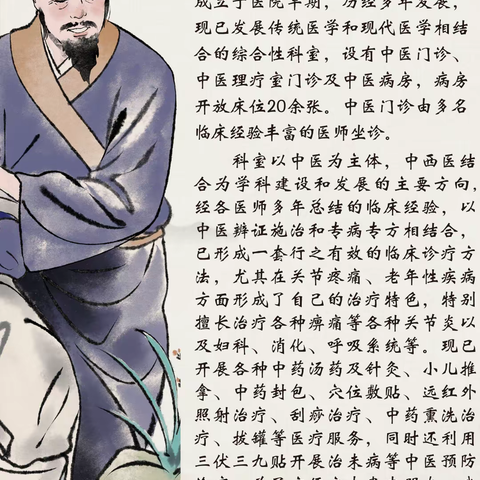 成立于医院早期，历经多年发展，
现已发展传统医学和现代医学相结
合的综合性科室，设有中医门诊、
中医理疗室门诊及中医病房，病房
开放床位20余张。中医门诊由多名
临床经验丰富的医师坐诊。
科室以中医为主体，中西医结
合为学科建设和发展的主要方向，
经各医师多年总结的临床经验，以
中医辨证施治和专病专方相结合，
已形成一套行之有效的临床诊疗方
法，尤其在关节疼痛、老年性疾病
方面形成了自己的治疗特色，特别
擅长治疗各种痹痛等各种关节炎以
及妇科、消化、呼吸系统等。现已
开展各种中药汤药及针灸、小儿推
拿、中药封包、穴位敷贴、远红外
照射治疗、刮痧治疗、中药熏洗治
疗、拔罐等医疗服务，同时还利用
三伏三九贴开展治未病等中医预防